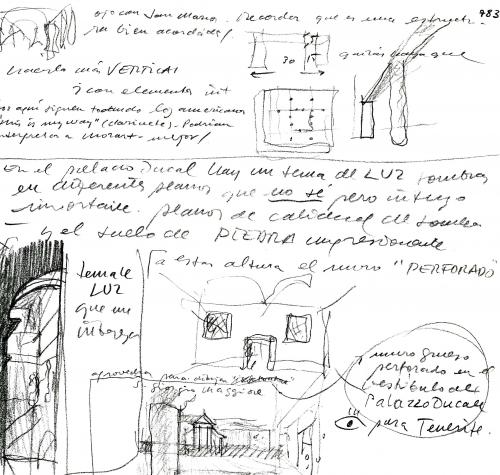 ojo con San Marco. recordar que es una estructu-
ra bien acordada/
983
30 15
quizás haya que
hacerlo más VERTICAL
y con elementos int
por aquí siguen tocando los americanos
is my way" (clarinete). Podrían
interpretar a Mozart. mejor/
En el palacio Ducal hay un tema de LUZ sombras
en diferentes planos que no sé pero intuyo
importante. planos de calidad de sombra
y el suelo de PIEDRA impresionante
tema de
LUZ
que me
interesa
a esta altura el muro "PERFORADO"
aprovechar para dibujar
giorgio maggiore
muro grueso
perforado en el
vestíbulo del
Palazzo Ducale
para Tenerife.